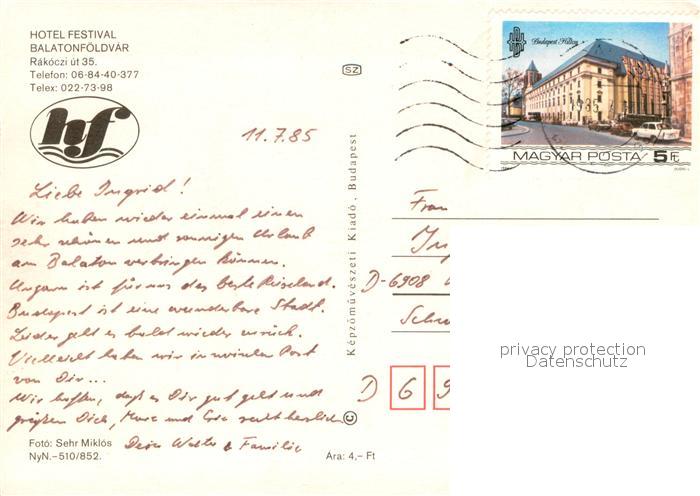 HOTEL FESTIVAL
BALATONFÖLDVÁR
Rákóczi út 35.
Telefon: 06-84-40-377
Telex: 022-73-98
hf
11.7.85
Liebe Ingrid!
Wir haben wieder einmal einen
sehr schönen und sonnigen Urlaub
am Balaton verbringen können.
Ungarn ist für uns das beste Reiseland.
Budapest ist eine wunderbare Stadt.
Leider geht es bald wieder zurück.
Vielleicht haben wir inzwischen Post
von Dir...
Wir hoffen, daß es Dir gut geht und
grüßen Dich, und recht herzlich
Deine & Familie
Fotó: Sehr Miklós
NyN.–510/852.
Ára: 4,– Ft
SZ
Képzőművészeti Kiadó, Budapest
©
Budapest Hilton
1985
MAGYAR POSTA 5 Ft
Frau
D-6908
D 6 9
privacy protection
Datenschutz